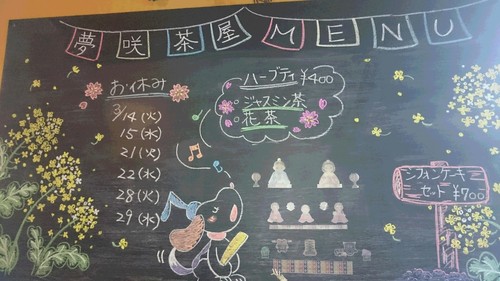 夢咲茶屋MENU
お休み
3/14(火)
15(水)
21(火)
22(水)
28(火)
29(水)
ハーブティ ¥400
・ジャスミン茶
・花茶
シフォンケーキ
セット ¥700